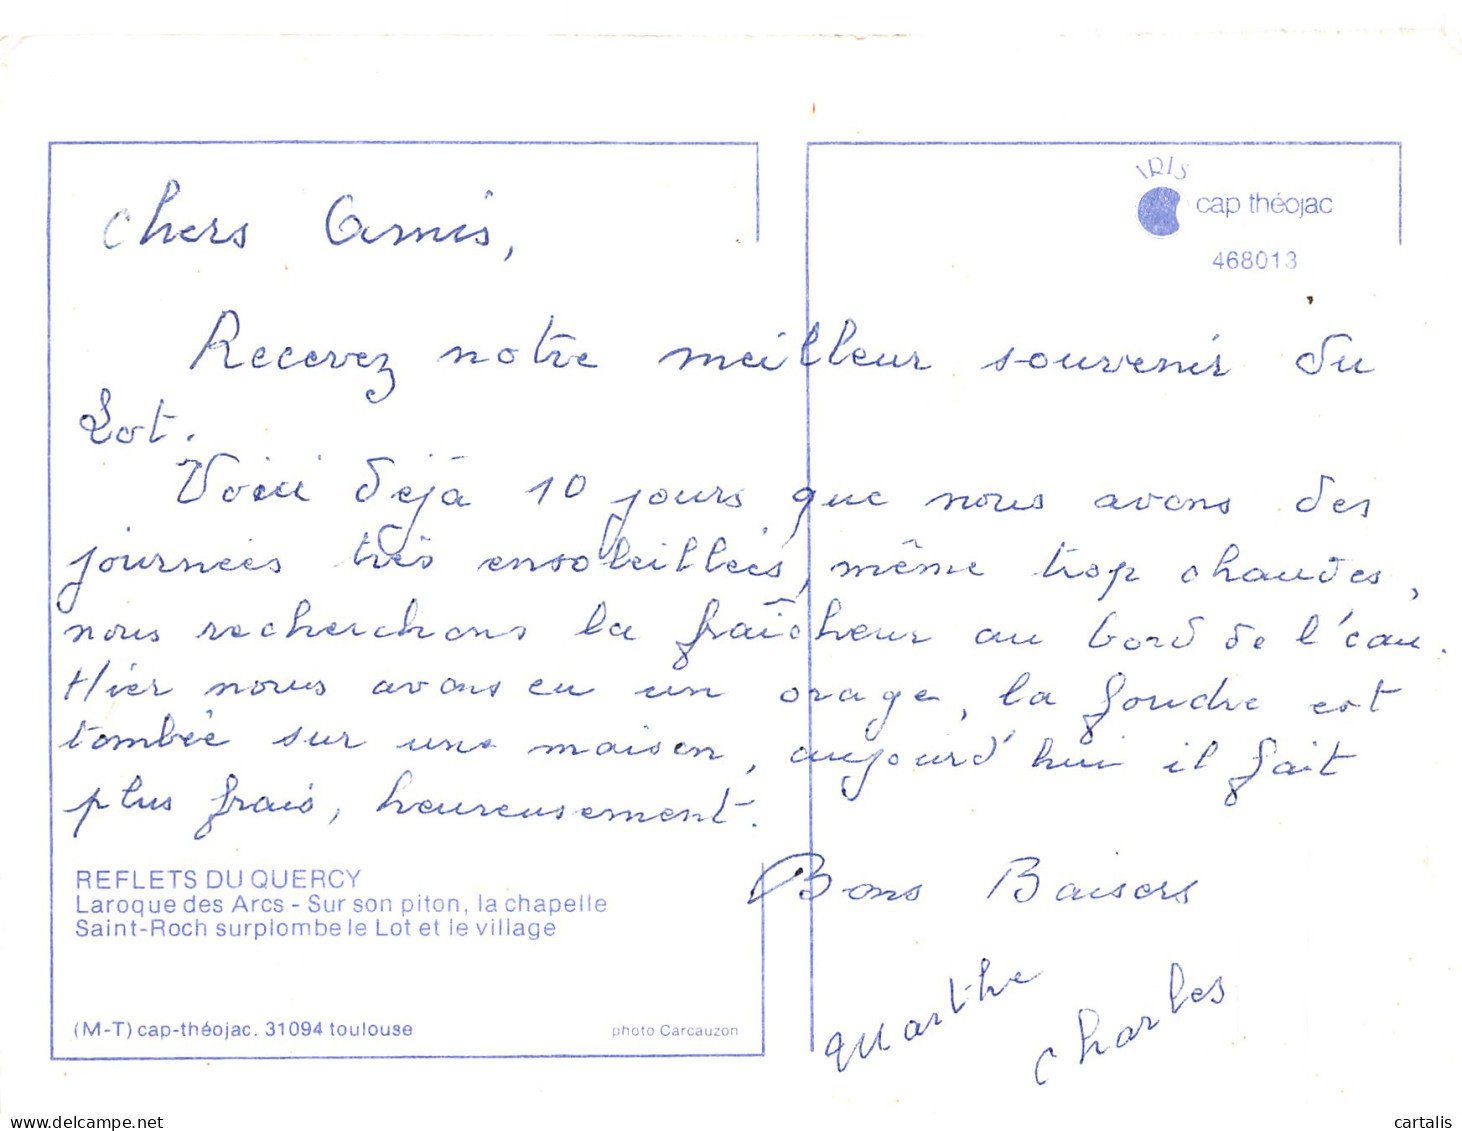 IRIS
cap théojac
468013
Chers Amis,
Recevez notre meilleur souvenir du
Lot.
Voici déjà 10 jours que nous avons des
journées très ensoleillées, même trop chaudes,
nous recherchons la fraîcheur au bord de l'eau.
Hier nous avons eu un orage, la foudre est
tombée sur une maison, aujourd'hui il fait
plus frais, heureusement.
Bons Baisers
Marthe
Charles
REFLETS DU QUERCY
Laroque des Arcs - Sur son piton, la chapelle
Saint-Roch surplombe le Lot et le village
(M-T) cap-théojac. 31094 toulouse
photo Carcauzon
cartalis